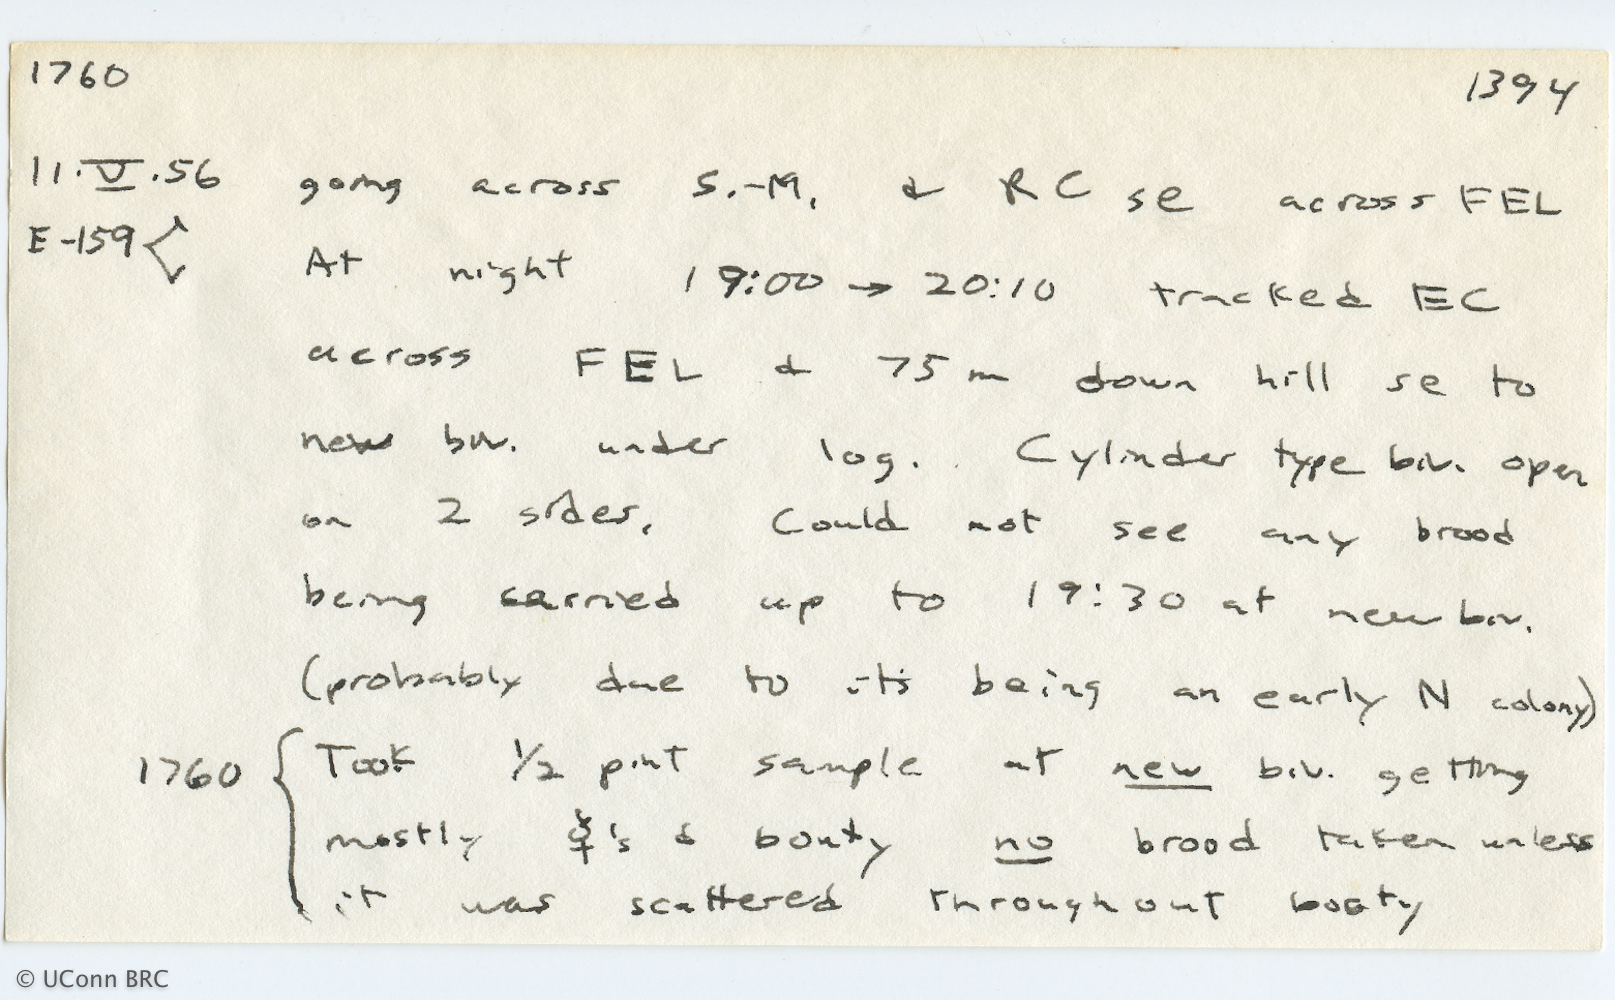 1760 1394
11.V.56 going across S.-M. & RC se across FEL
E-159 < At night 19:00 → 20:10 tracked EC
across FEL & 75 m down hill se to
new biv. under log. Cylinder type biv. open
on 2 sides. Could not see any brood
being carried up to 19:30 at new biv.
(probably due to it's being an early N colony)
1760 { Took 1/2 pint sample at new biv. getting
mostly ☿'s & booty no brood taken unless
it was scattered throughout booty
© UConn BRC